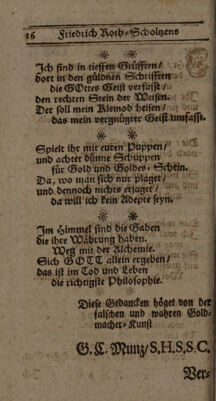 16 Friedrich Roth-Scholtzens
* *
Ich sind in tieffen Grüfften/
dort in den güldnen Schrifften
die GOttes Geist verfasst/
den rechten Stein der Weisen.
Der soll mein Kleinod heisen/
das mein vergnügter Geist umfasst.
* *
Spielt ihr mit euren Puppen/
und achtet dünne Schuppen
für Gold und Goldes-Schein.
Da, wo man sich nur plaget/
und dennoch nichts erjaget/
da will ich kein Adepte seyn.
* *
Im Himmel sind die Gaben
die ihre Währung haben.
Weg mit der Alchemie.
Sich GOTT allein ergeben/
das ist im Tod und Leben
die richtigste Philosophie.
Diese Gedancken heget von der
falschen und wahren Gold-
macher-Kunst
G. C. Munz/S.H.S.S.C.
Ver-